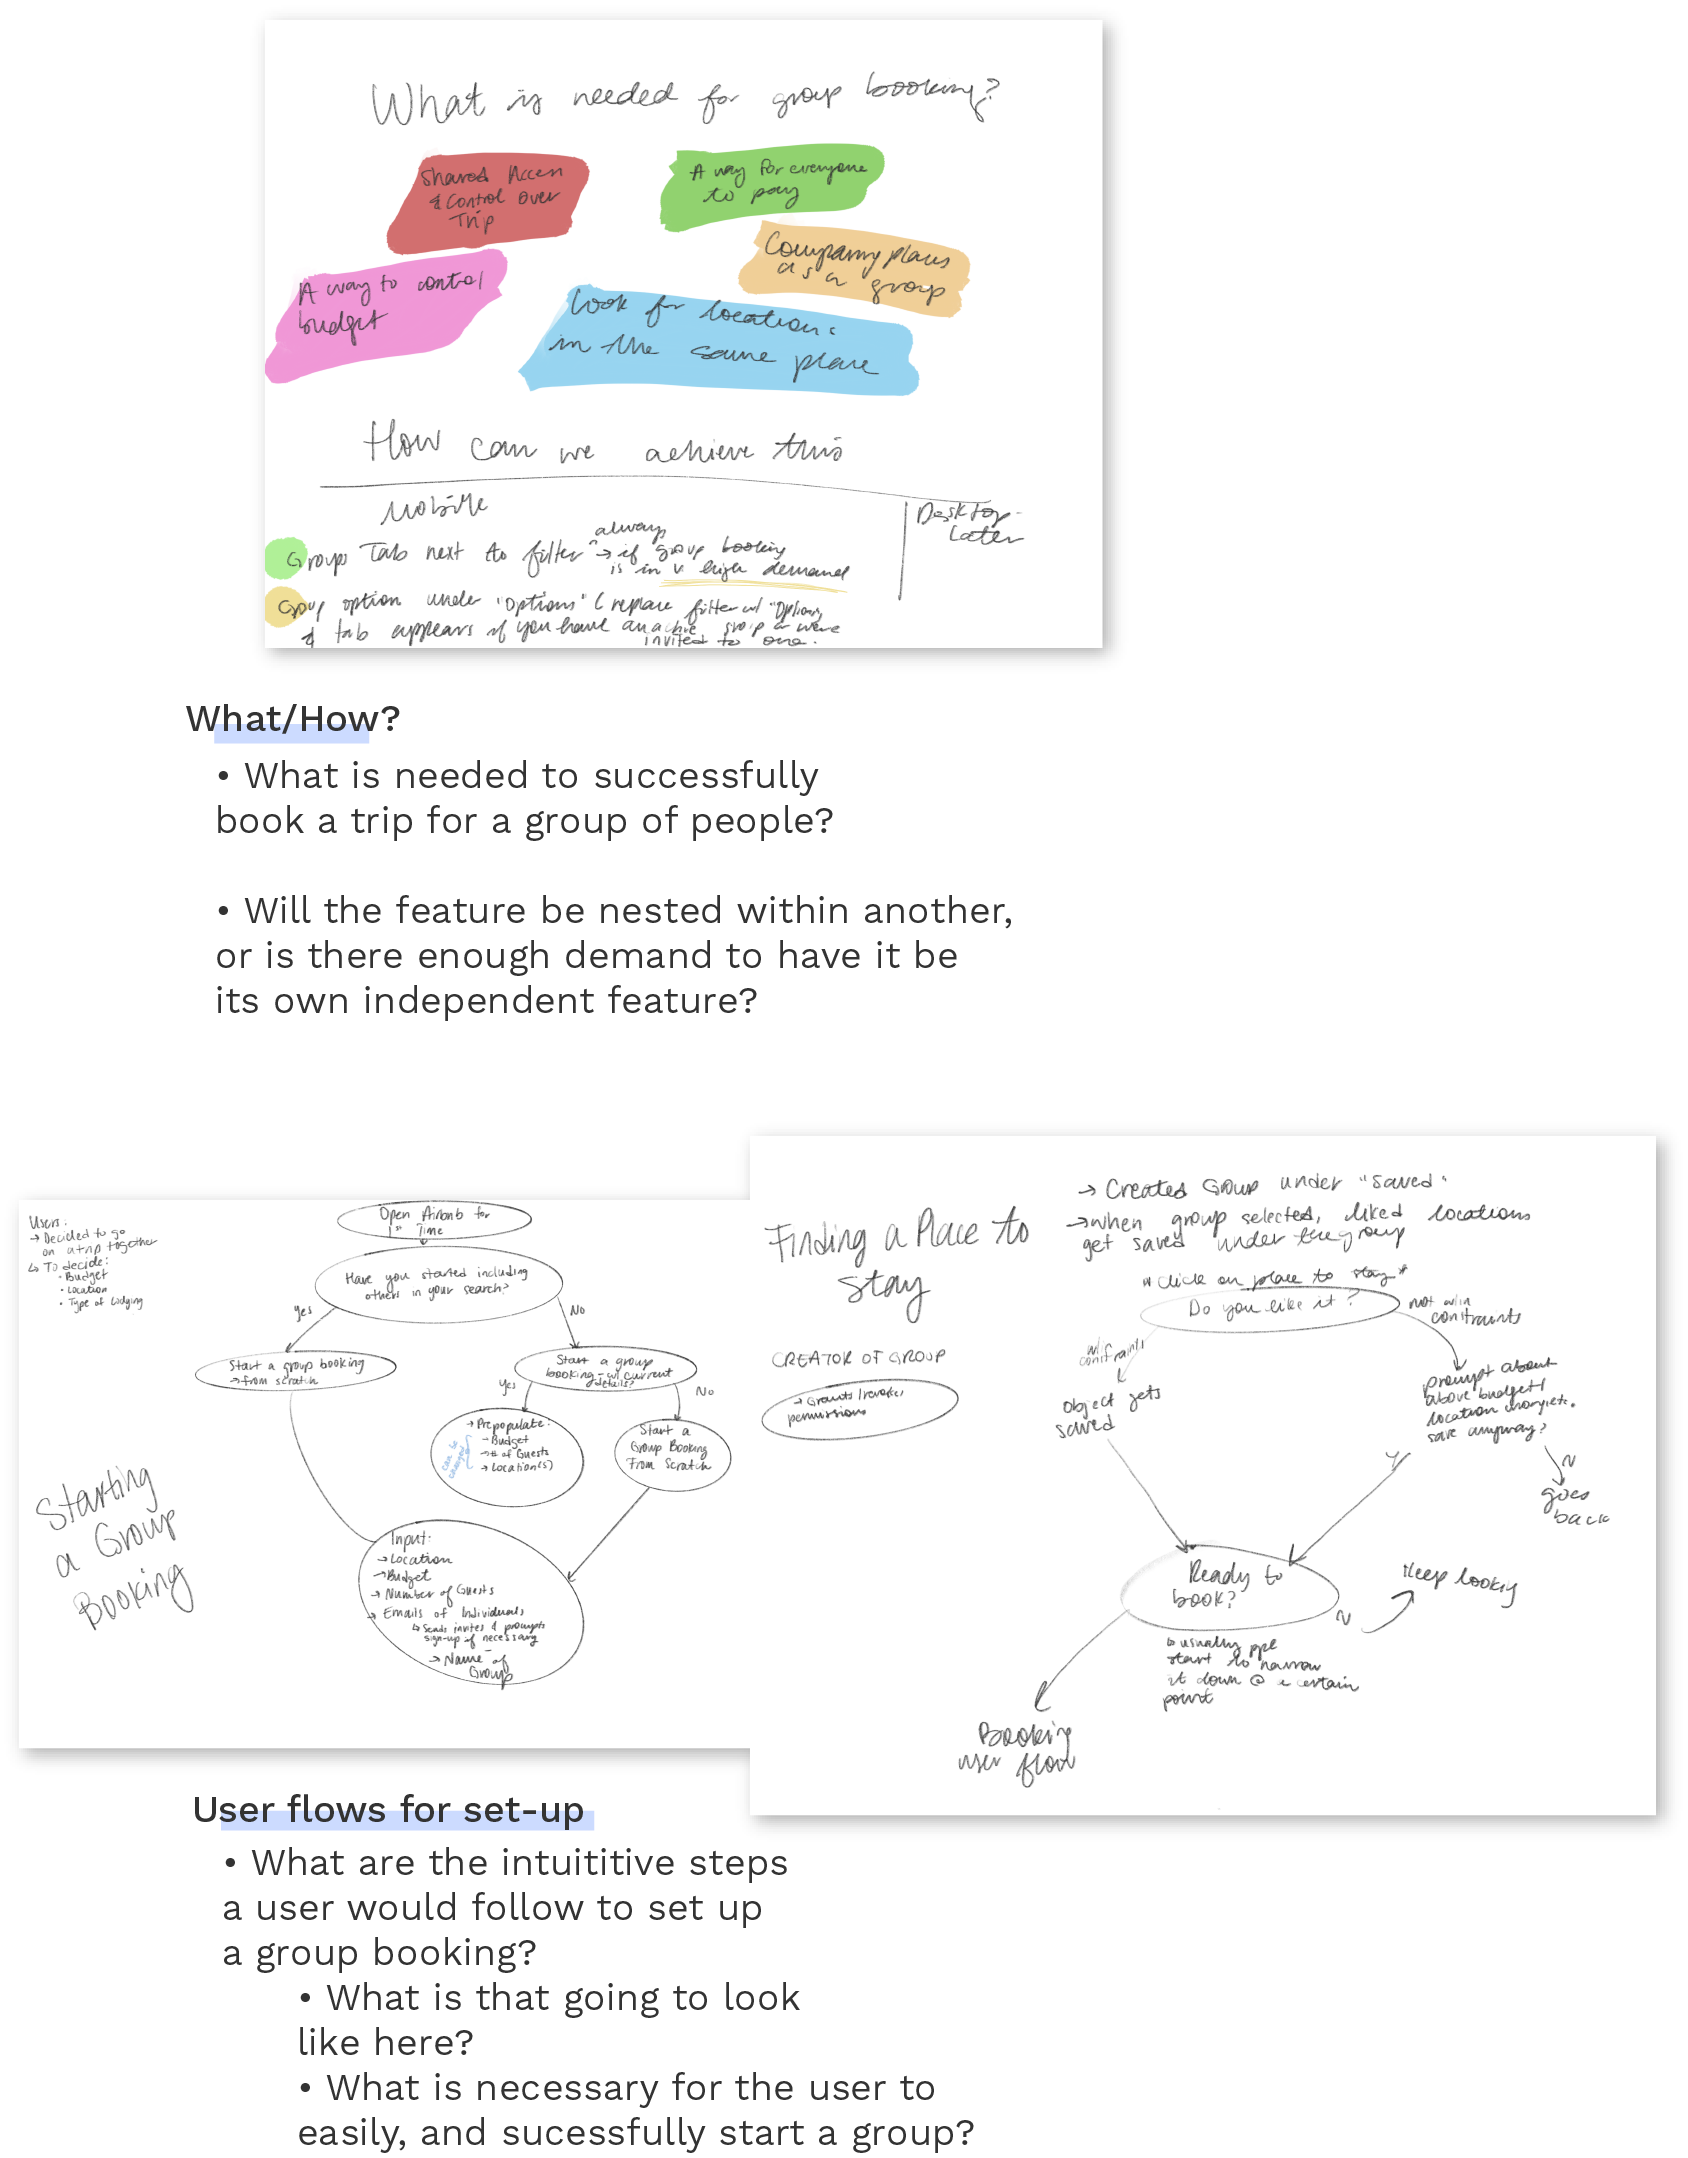 What is needed for group booking?
Shared Access
& Control Over
Trip
A way for everyone
to pay
Comparing places
as a group
A way to control
budget
Look for locations
in the same place
How can we achieve this
Mobile
Desktop
Later
always
Groups Tab next to filter → if group booking
is in v high demand
Group option under "Options" (replace filter w/ "Options"
& tab appears if you have an active group or were
invited to one.
What/How?
• What is needed to successfully
book a trip for a group of people?
• Will the feature be nested within another,
or is there enough demand to have it be
its own independent feature?
Users:
→ Decided to go
on a trip together
↳ To decide:
• Budget
• Location
• Type of Lodging
Starting
a Group
Booking
Open Airbnb for
1st Time
Have you started including
others in your search?
Yes
No
Start a group booking
→ from scratch
Start a group
booking - w/ current
details?
Yes
No
→ Prepopulate:
→ Budget
→ # of Guests
→ Location(s)
can be
changed
Start a
Group Booking
From Scratch
Input:
→ Location
→ Budget
→ Number of Guests
→ Emails of Individuals
↳ Sends invites & prompts
sign-up if necessary
→ Name of
Group
Finding a Place to
Stay
→ Created Group under "saved"
→ when group selected, liked locations
get saved under the group
CREATOR OF GROUP
→ Grants/revokes
permissions
* click on place to stay *
Do you like it?
w/ constraints
not w/in
constraints
object gets
saved
prompt about
above budget/
location change etc.
save anyway?
Y
N
goes
back
Ready to
book?
N
Keep looking
↳ usually ppl
start to narrow
it down @ a certain
point
Booking
user flow
User flows for set-up
• What are the intuititive steps
a user would follow to set up
a group booking?
• What is that going to look
like here?
• What is necessary for the user to
easily, and sucessfully start a group?